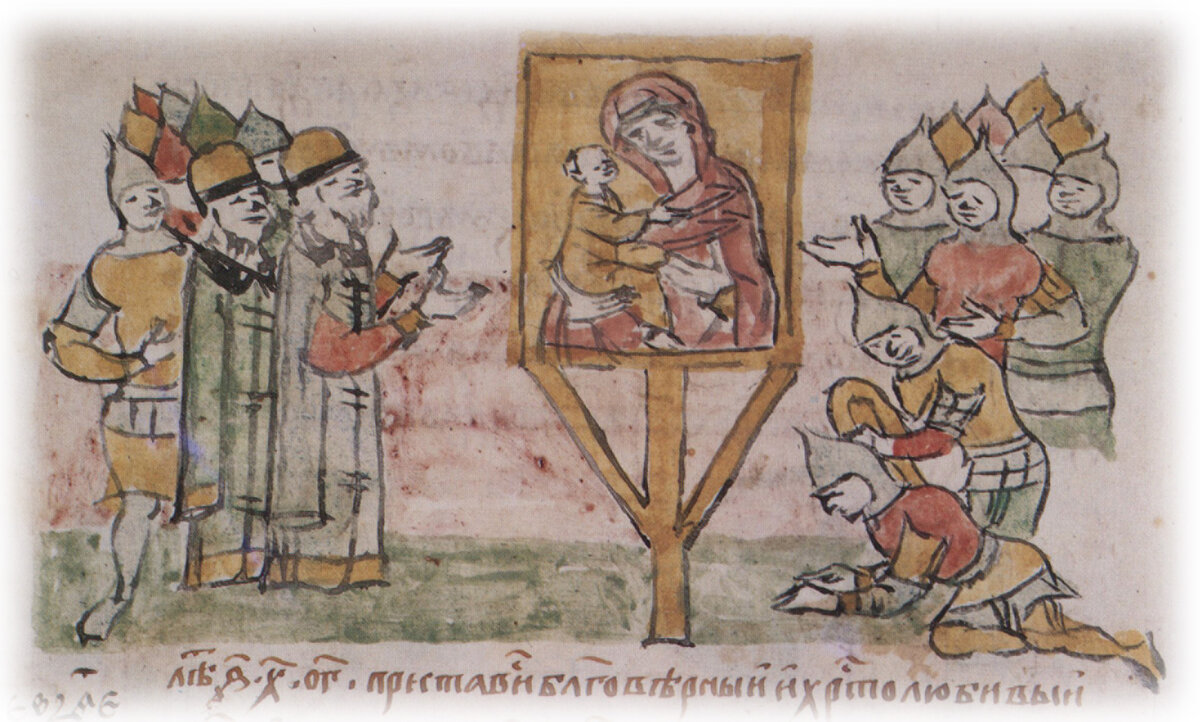 лѣⷮ ҂ѕ҃ · х҃ · ог҃ · пристави блг҃овѣрныи и хрⷭ҇толюбивыи